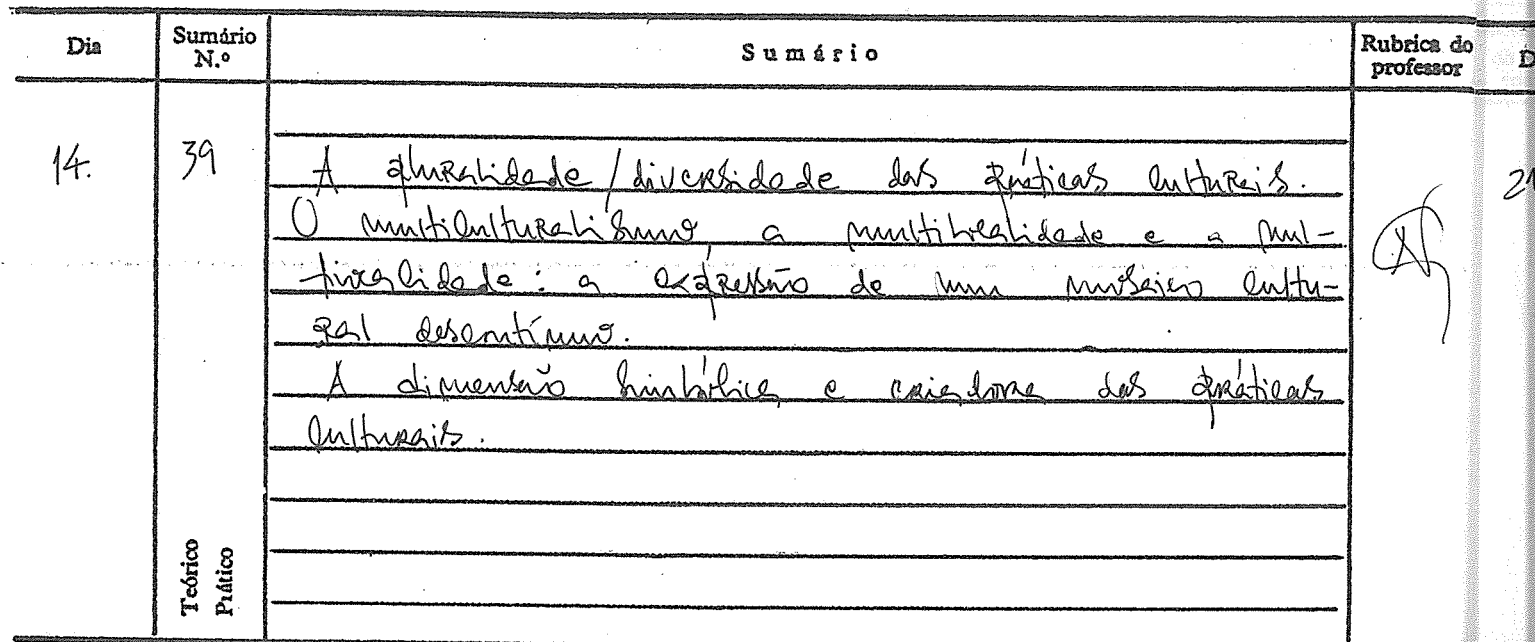 Dia Sumário N.º Sumário Rubrica do professor D
14. 39 A pluralidade / diversidade das práticas culturais. 21
O multiculturalismo, a e a mul-
: a expressão de um mosaico cultu-
ral descontínuo.
A dimensão simbólica e criadora das práticas
culturais.
Teórico
Prático